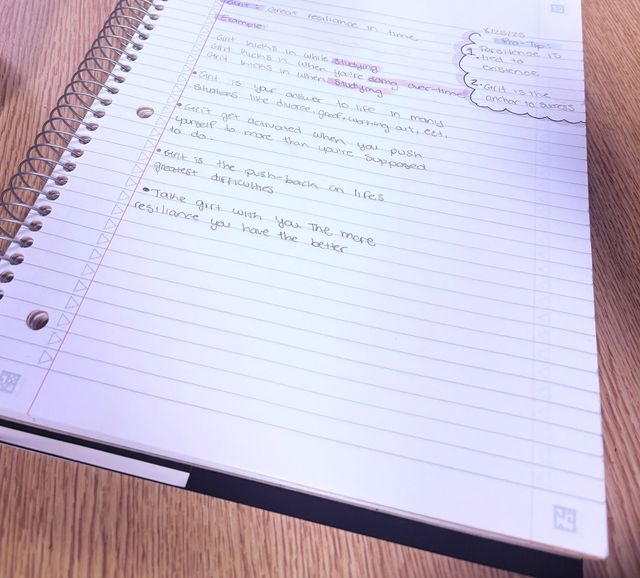 Grit: Great resiliance in time
Example:
Grit kicks in while studying
Grit kicks in when you're doing over-time
Grit kicks in when studying
• Grit is your answer to life in many
situations like divorce, grief, working out, ect.
• Grit get activated when you push
yourself to more than you're supposed
to do.
• Grit is the push-back on lifes
greatest difficulties
• Take girt with you. The more
resiliance you have the better
8/25/25
Pro-Tip:
1. Resilience is
tied to
existence
2. Grit is the
anchor to success